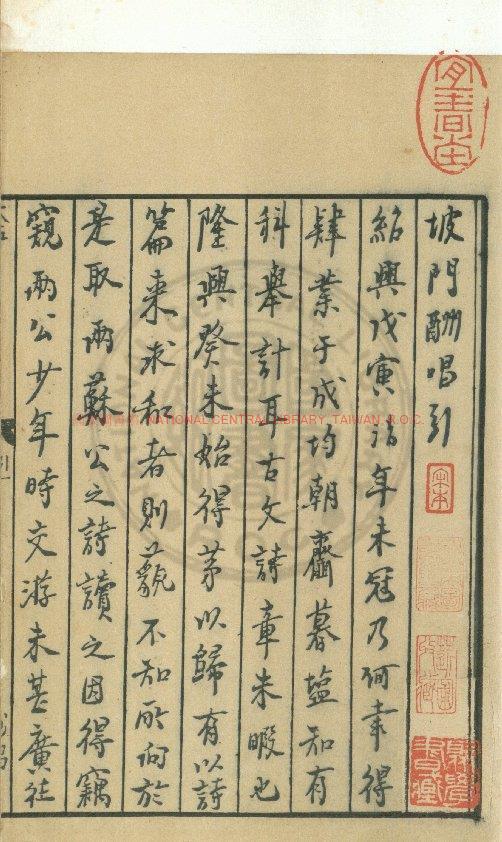 坡門酬唱引
紹興戊寅浩年未冠乃何幸得
肄業于成均朝齏暮鹽知有
科舉計耳古文詩章未暇也
隆興癸未始得第以歸有以詩
篇來求和者則藐不知所向於
是取兩蘇公之詩讀之因得竊
窺兩公少年時交游未甚廣往
宋本
NATIONAL CENTRAL LIBRARY, TAIWAN, R.O.C.